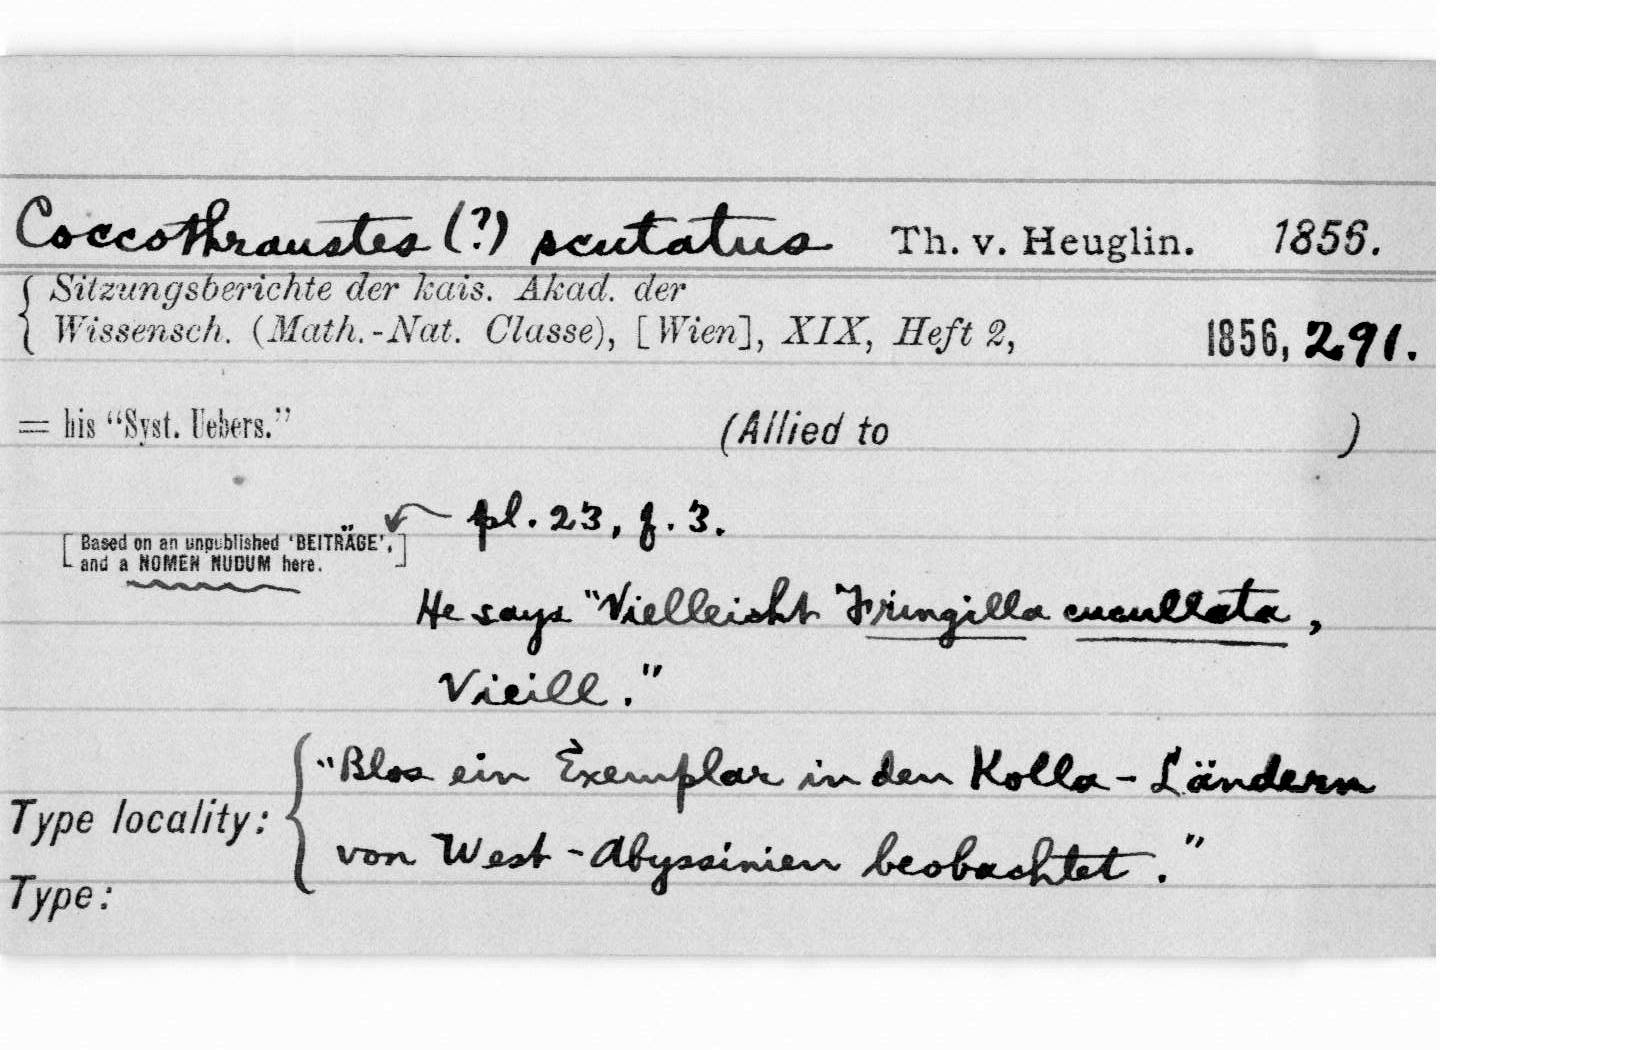 Coccothraustes (?) scutatus Th. v. Heuglin. 1856.
Sitzungsberichte der kais. Akad. der
Wissensch. (Math.-Nat. Classe), [Wien], XIX, Heft 2, 1856, 291.
= his “Syst. Uebers.” (Allied to )
pl. 23, f. 3.
[Based on an unpublished ‘BEITRÄGE’,
and a NOMEN NUDUM here.]
He says "Vielleicht Fringilla cucullata,
Vieill."
"Blos ein Exemplar in den Kolla-Ländern
Type locality:
von West-Abyssinien beobachtet."
Type: